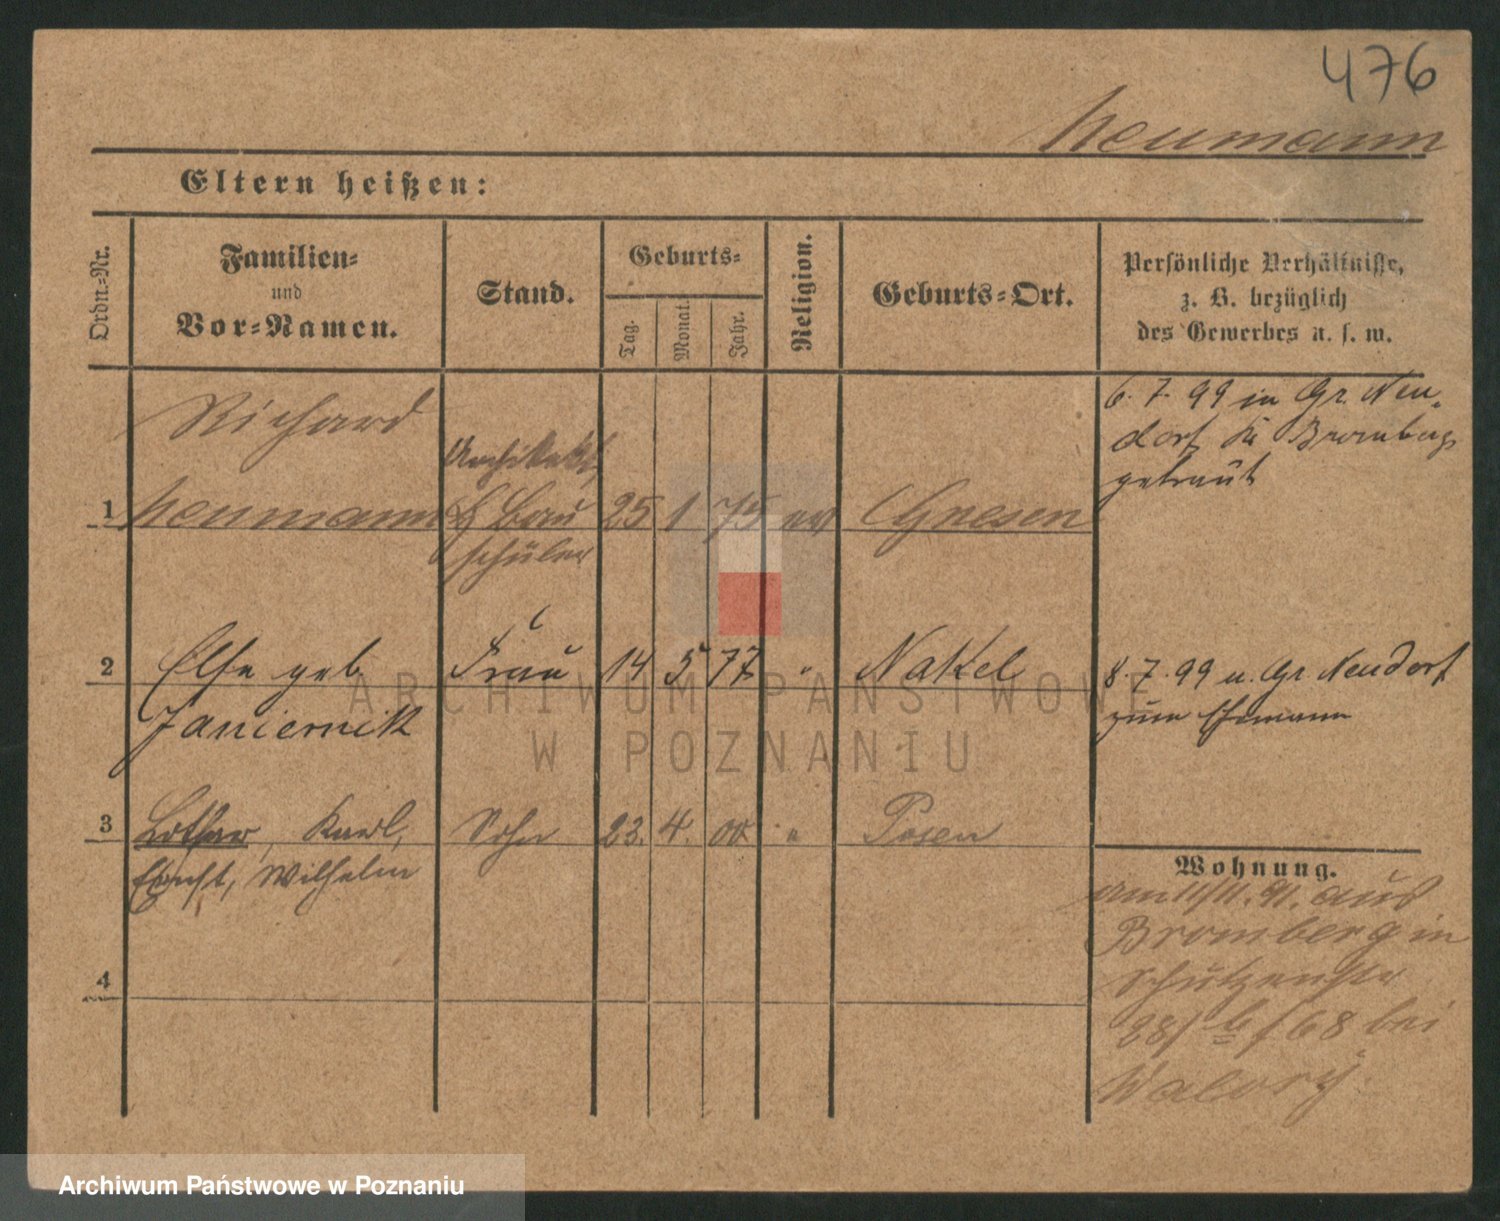 476
Neumann
Eltern heißen:
Ordn.-Nr.
Familien-
und
Vor-Namen.
Stand.
Geburts-
Tag.
Monat.
Jahr.
Religion.
Geburts-Ort.
Persönliche Verhältnisse,
z. B. bezüglich
des Gewerbes u. s. w.
Richard
Architekt
1 Neumann Bau 25 1 75 ev Gnesen
schüler
6.7.99 in Gr. Neu-
dorf Bromberg
getraut
2 Else geb. Frau 14 5 77 " Nakel
Janiernik
8.7.99 u. Gr Neudorf
zum Ehemann
3 Lothar, Karl, Sohn 23. 4. 00 " Posen
Ernst, Wilhelm
4
Wohnung.
am 11/11. 91. aus
Bromberg in
Schützenstr
28/ b/68 bei
ARCHIWUM PAŃSTWOWE
W POZNANIU
Archiwum Państwowe w Poznaniu